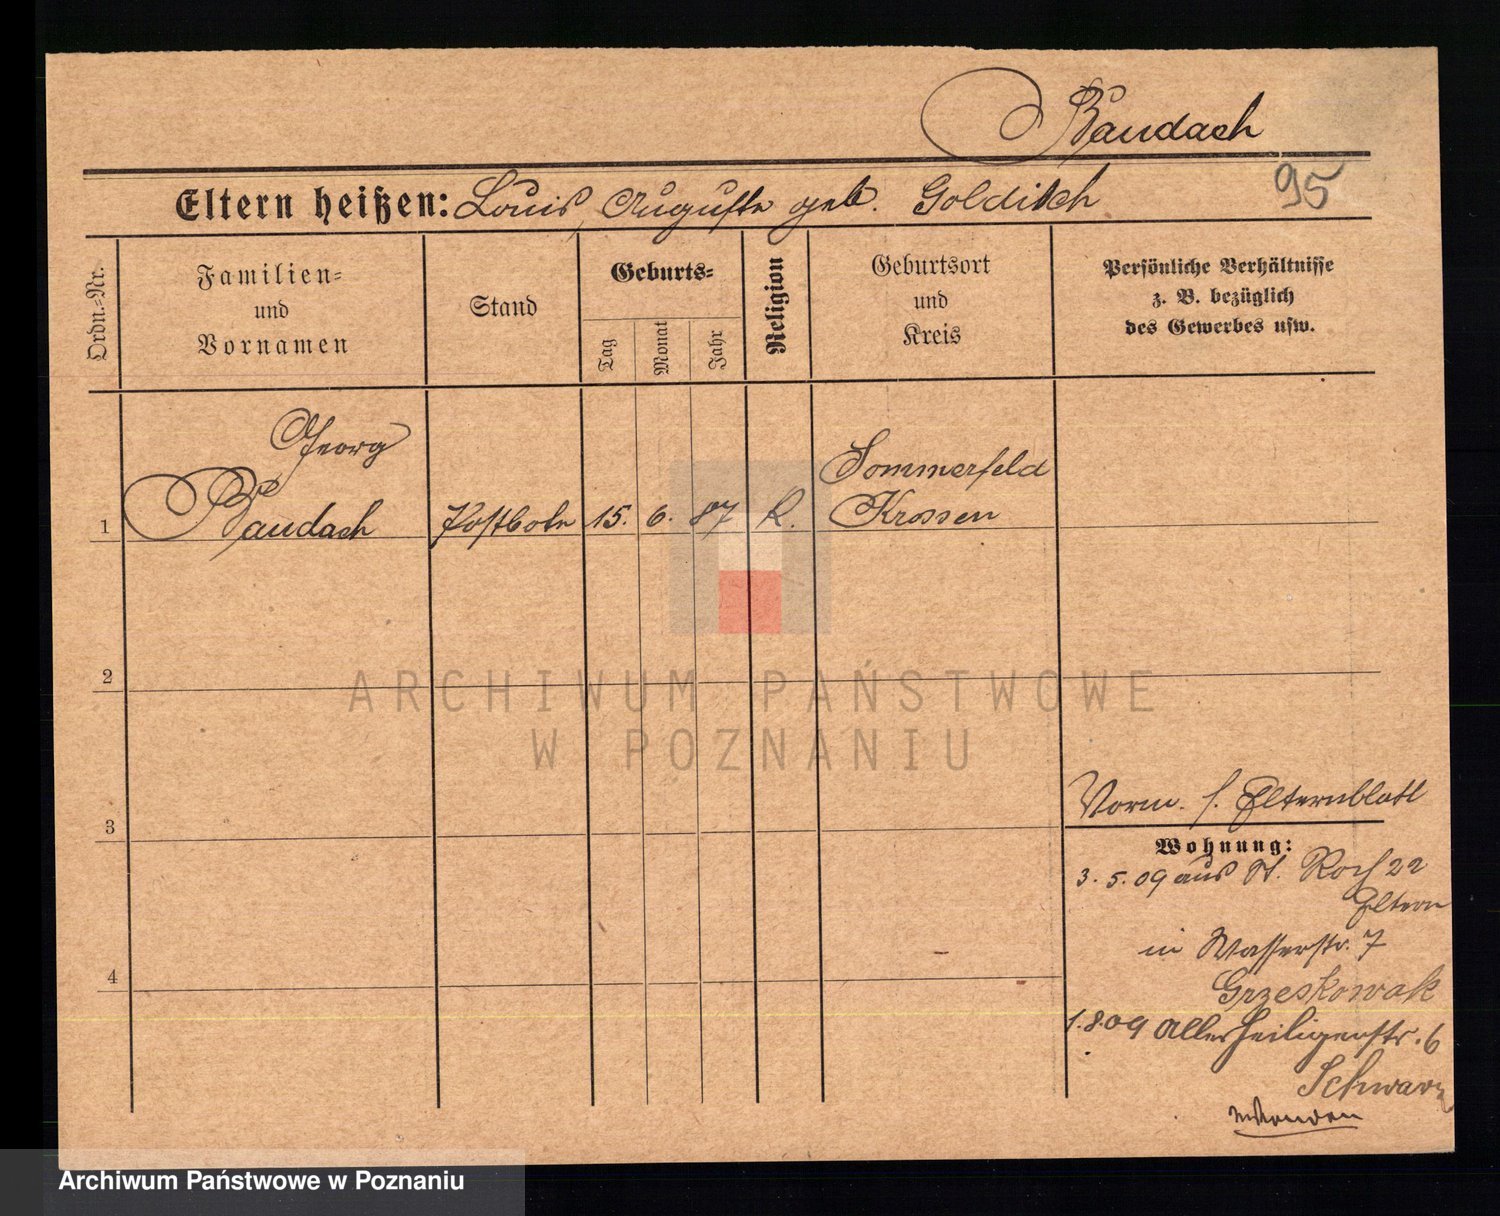 Baudach
95
Eltern heißen: Louis, Auguste geb. Golditsch
Ordn.=Nr.
Familien=
und
Vornamen
Stand
Geburts=
Tag
Monat
Jahr
Religion
Geburtsort
und
Kreis
Persönliche Verhältnisse
z. B. bezüglich
des Gewerbes usw.
1
Georg
Baudach
Postbote
15.
6.
87
K.
Sommerfeld
Krossen
2
3
4
Vorm. s. Elternblatt
Wohnung:
3.5.09 aus St. Roch 22
Eltern
in Wasserstr. 7
Grzeskowak
1.8.09 Allerheiligenstr. 6
Schwarz
ARCHIWUM PAŃSTWOWE
W POZNANIU
Archiwum Państwowe w Poznaniu